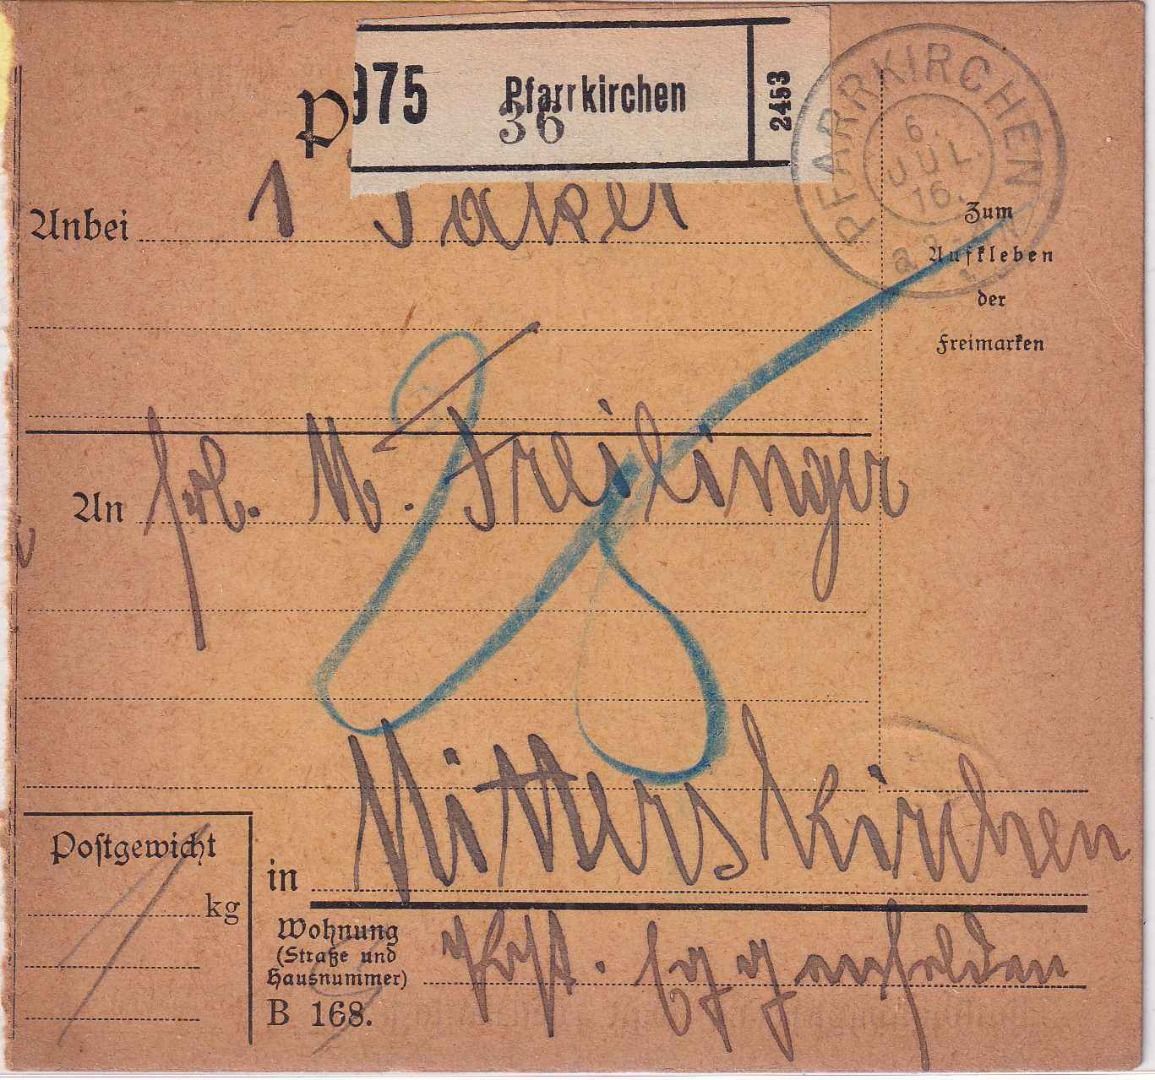 975 Pfarrkirchen 2453
36
P
PFARRKIRCHEN
6.
JUL.
16.
Anbei 1 Paket
Zum
Aufkleben
der
Freimarken
An Frl. M. Freilinger
in Mitterskirchen
Postgewicht
kg
Wohnung
(Straße und
Hausnummer)
Post. Eggenfelden
B 168.